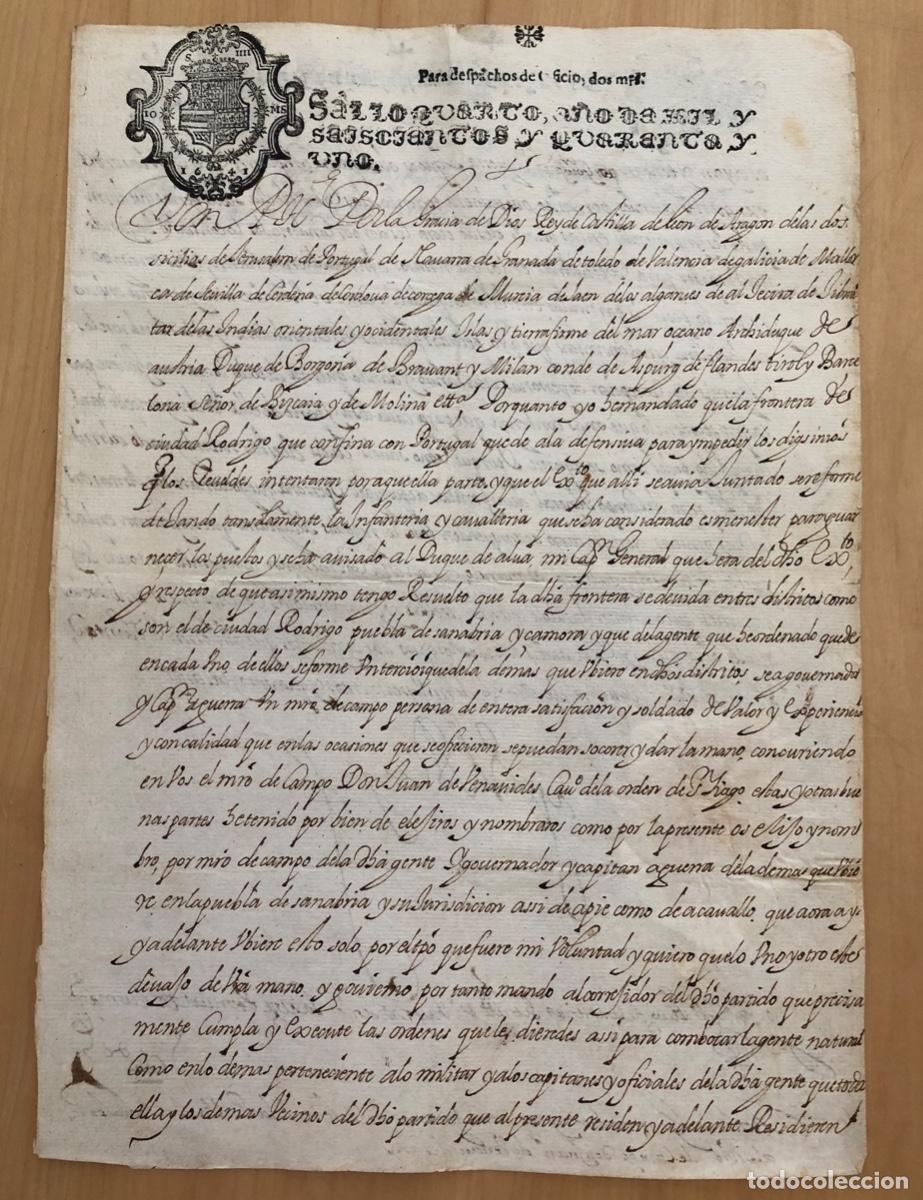 S IIII
Para despachos de oficio, dos mrs.
SELLO QVARTO, AÑO DE MIL Y
SEISCIENTOS Y QVARENTA Y
VNO.
IO MS
1641
Don Phe Por la Gracia de Dios Rey de Castilla de leon de Aragon de las dos
sicilias de Jerusalem de Portugal de Navarra de Granada de toledo de Valencia de galicia de Mallor
ca de Sevilla de Cerdeña de Cordova de corcega de Murcia de Jaen de los algarves de al Jecira de Jibral
tar de las Indias orientales y ocidentales Islas y tierra firme del mar oceano Archiduque de
austria Duque de Borgoña de Bravant y Milan conde de Aspurg de flandes tirol y Barce
lona Señor de Bizcaia y de Molina etta, Porquanto yo he mandado que la frontera de
ciudad Rodrigo que confina con Portugal quede a la defensiva para ympedir los disignios
q los Reveldes intentaron por aquella parte, y que el exto que alli se avia Juntado se reforme
dejando tansolamente la Infanteria y cavalleria que se ha considerado es menester para guar
necer los puestos y se ha avisado al Duque de alva mi Capn General que hera del dho exto,
y respecto de que asimismo tengo Resuelto que la dha frontera se devida en tres distritos como
son el de ciudad Rodrigo puebla de sanabria y çamora y que de la gente que he ordenado quede
en cada Vno de ellos se forme Vn tercio i que de la demas que Vbiere en dhos distritos sea governador
y Capn a guerra Vn mro de campo persona de entera satisfacion y soldado de Valor y experiencia
y con calidad que en las ocasiones que se ofrecieron se puedan socorer y dar la mano, concuriendo
en Vos el mro de Campo Don Juan de Venavides Cavo de la orden de Stiago estas y otras bue
nas partes he tenido por bien de elejiros y nombraros como por la presente os elijo y nom
bro, por mro de campo de la dha gente y governador y capitan a guerra de la demas que Vbie
re en la puebla de sanabria y su Jurisdicion assi de a pie como de a cavallo que aora ay
y adelante Vbiere esto solo por el tpo que fuere mi Voluntad y quiero que lo Vno y otro este
devajo de Vra mano y govierno, por tanto mando al corregidor del dho partido que precisa
mente Cumpla y execute las ordenes que le dieredes assi para combocar la gente natural
Como en lo demas perteneciente a lo militar y a los capitanes y oficiales de la dha gente que toda
ella y los demas Vecinos del dho partido que al presente residen y adelante Residieren
todocoleccion